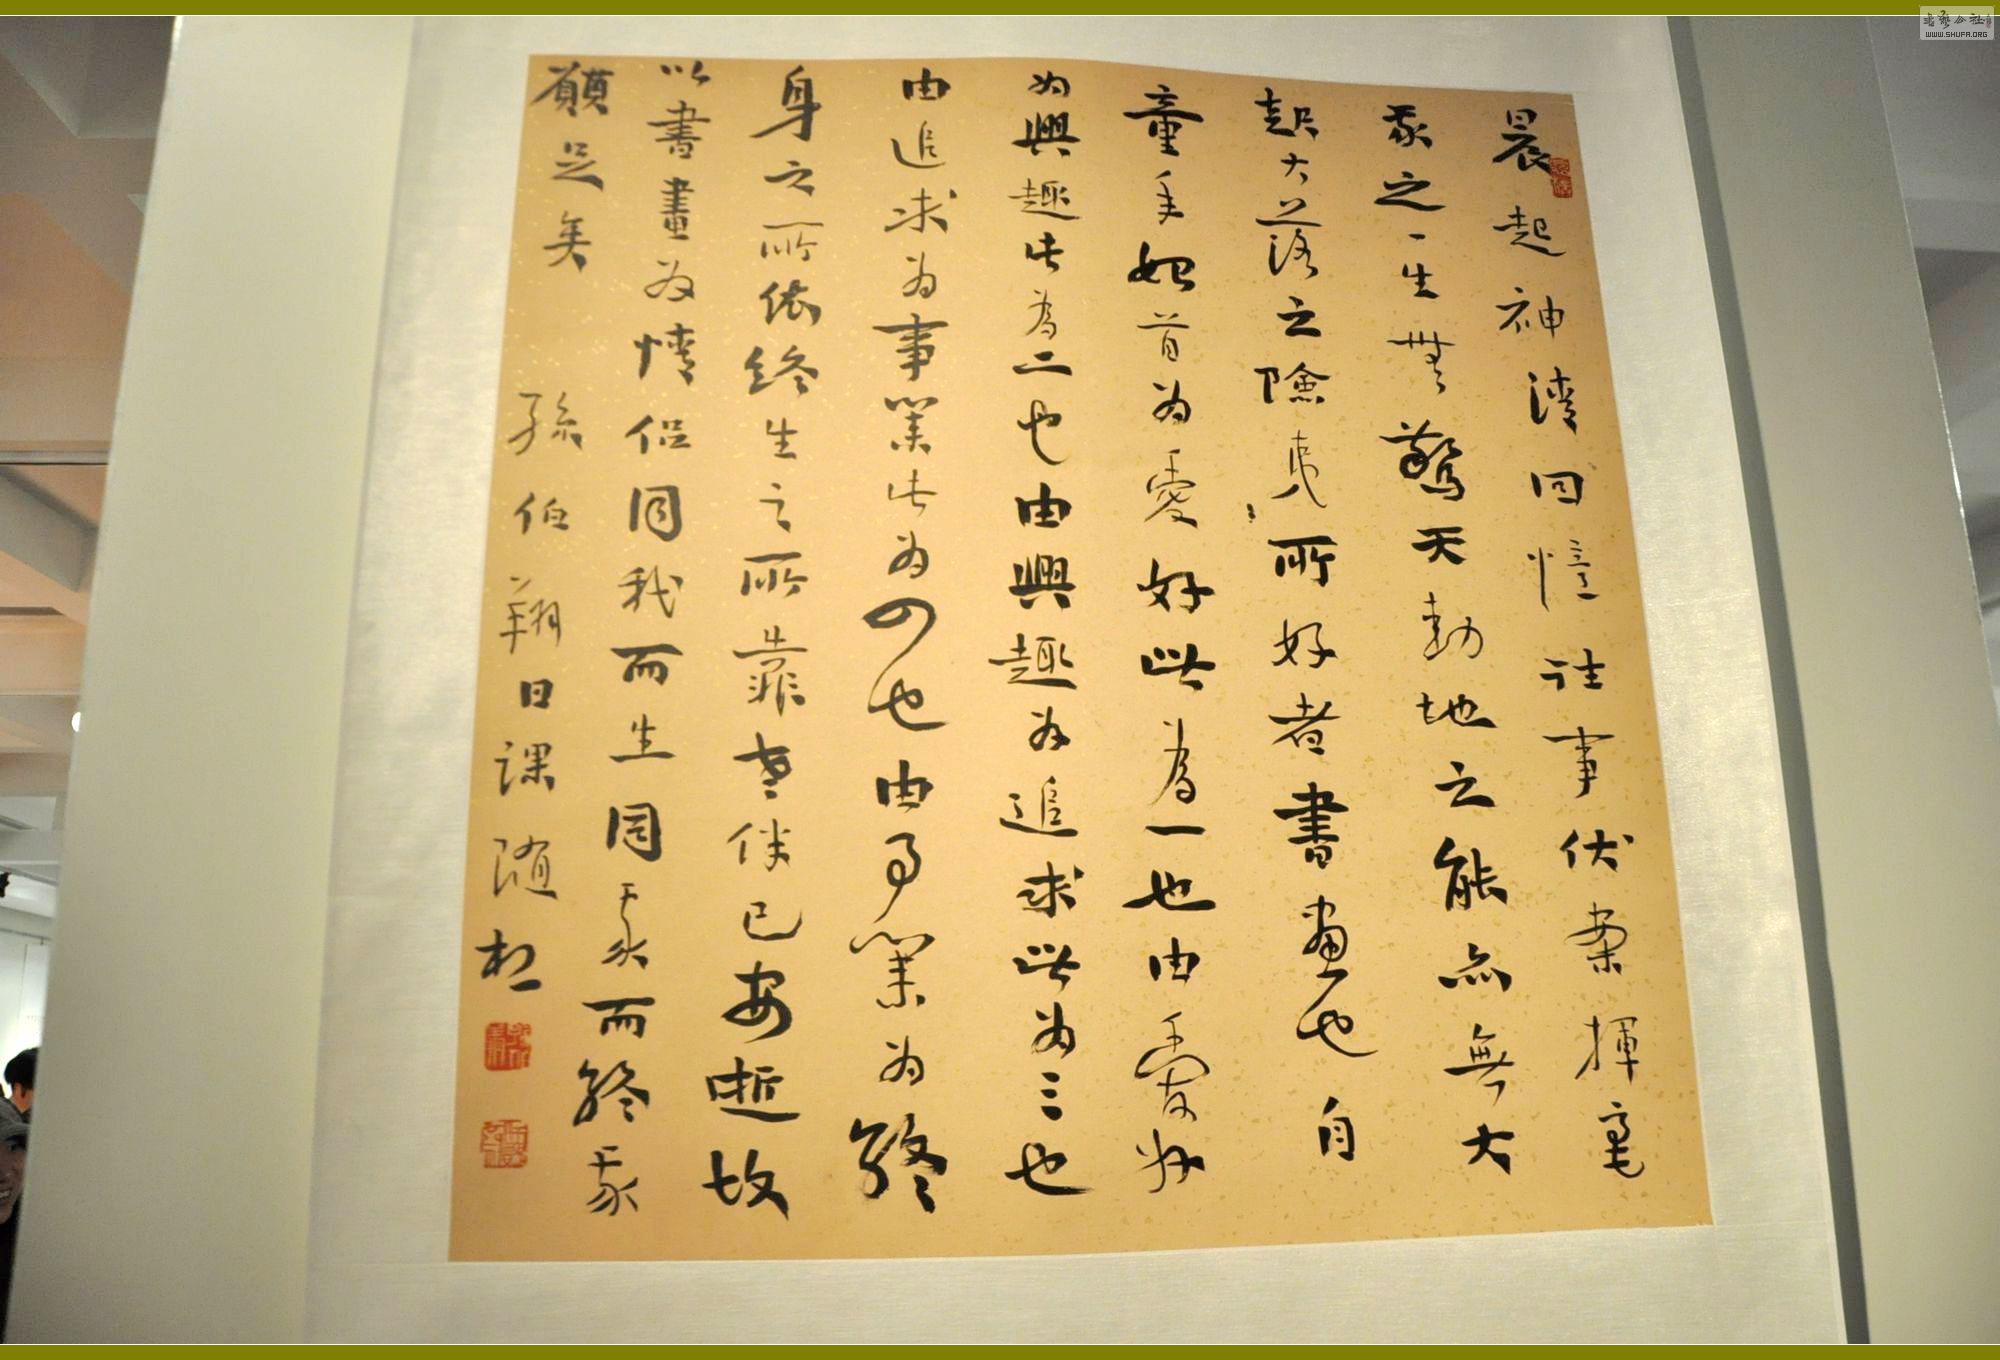 晨起神清回憶往事伏案揮毫
我之一生無驚天動地之能亦無大
起大落之險夷所好者書畫也自
童年始首為愛好此為一也由愛好
为興趣此為二也由興趣为追求此为三也
由追求为事業此为四也由事業为終
身之所依終生之所靠老伴已安逝故
以書畫为情侣同我而生同我而終我
願足矣 孫伯翔日課隨想
WWW.SHUFA.ORG